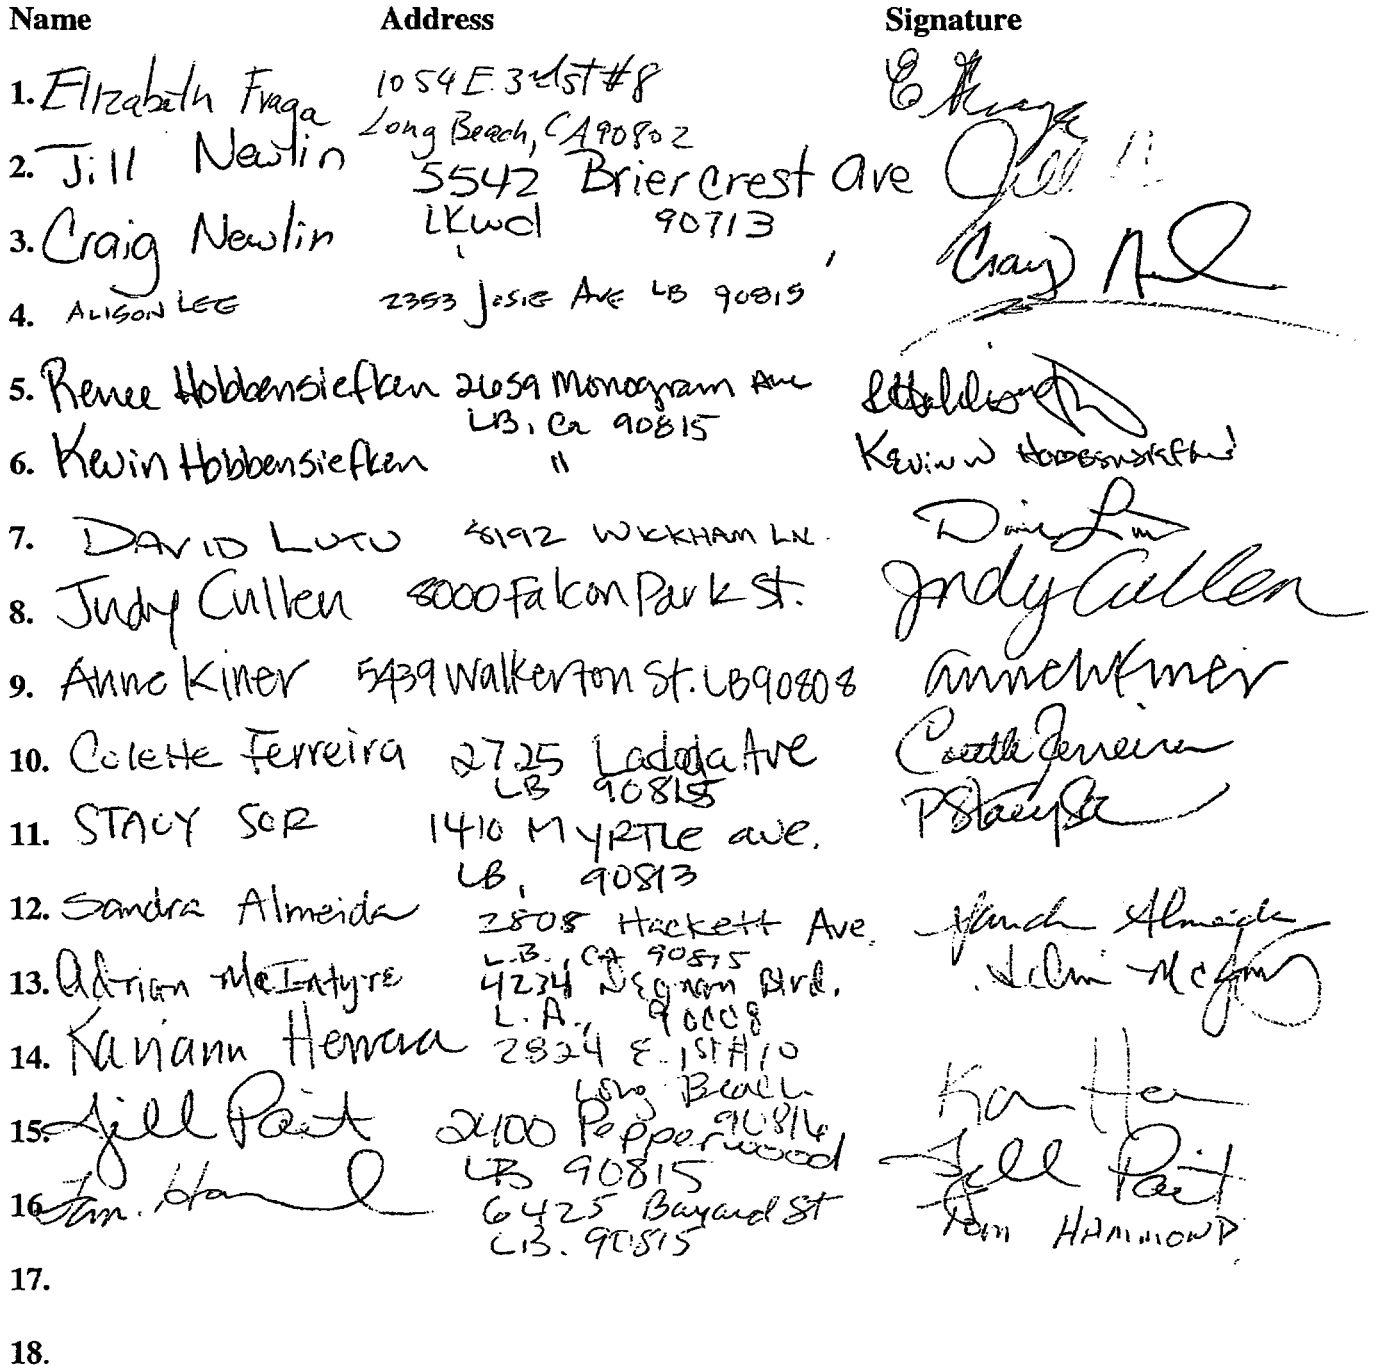 Name Address Signature
1. Elizabeth Fraga 1054 E. 3rd St #8 E Fraga
Long Beach, CA 90802
2. Jill Newlin 5542 Briercrest Ave Jill
LKwd 90713
3. Craig Newlin Craig
4. ALISON LEE 2353 JOSIE AVE LB 90815
5. Renee Hobbensiefken 2659 Monogram Ave
LB, Ca 90815
6. Kevin Hobbensiefken " Kevin W HOBBENSIEFKEN
7. DAVID LUTU 8192 WICKHAM LN.
8. Judy Cullen 8000 Falcon Park St. Judy Cullen
9. Anne Kiner 5439 Walkerton St. LB 90808 Anne W Kiner
10. Colette Ferreira 2725 Ladoga Ave Colette Ferreira
LB 90815
11. STACY SOR 1410 MYRTLE ave. P Stacy Sor
LB, 90813
12. Sandra Almeida 2808 Hackett Ave. Sandra Almeida
L.B., CA 90815
13. Adrian McIntyre 4234 Blvd.
L.A., 90008
14. Kariann Herrera 2824 E. 1st #10
Long Beach
90814
15. Jill Pait 2400 Pepperwood Jill Pait
LB 90815
16. Tom 6425 Bayard St Tom HAMMOND
LB. 90815
17.
18.